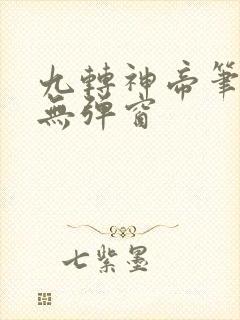 九轉神帝筆
無彈窗
七紫墨